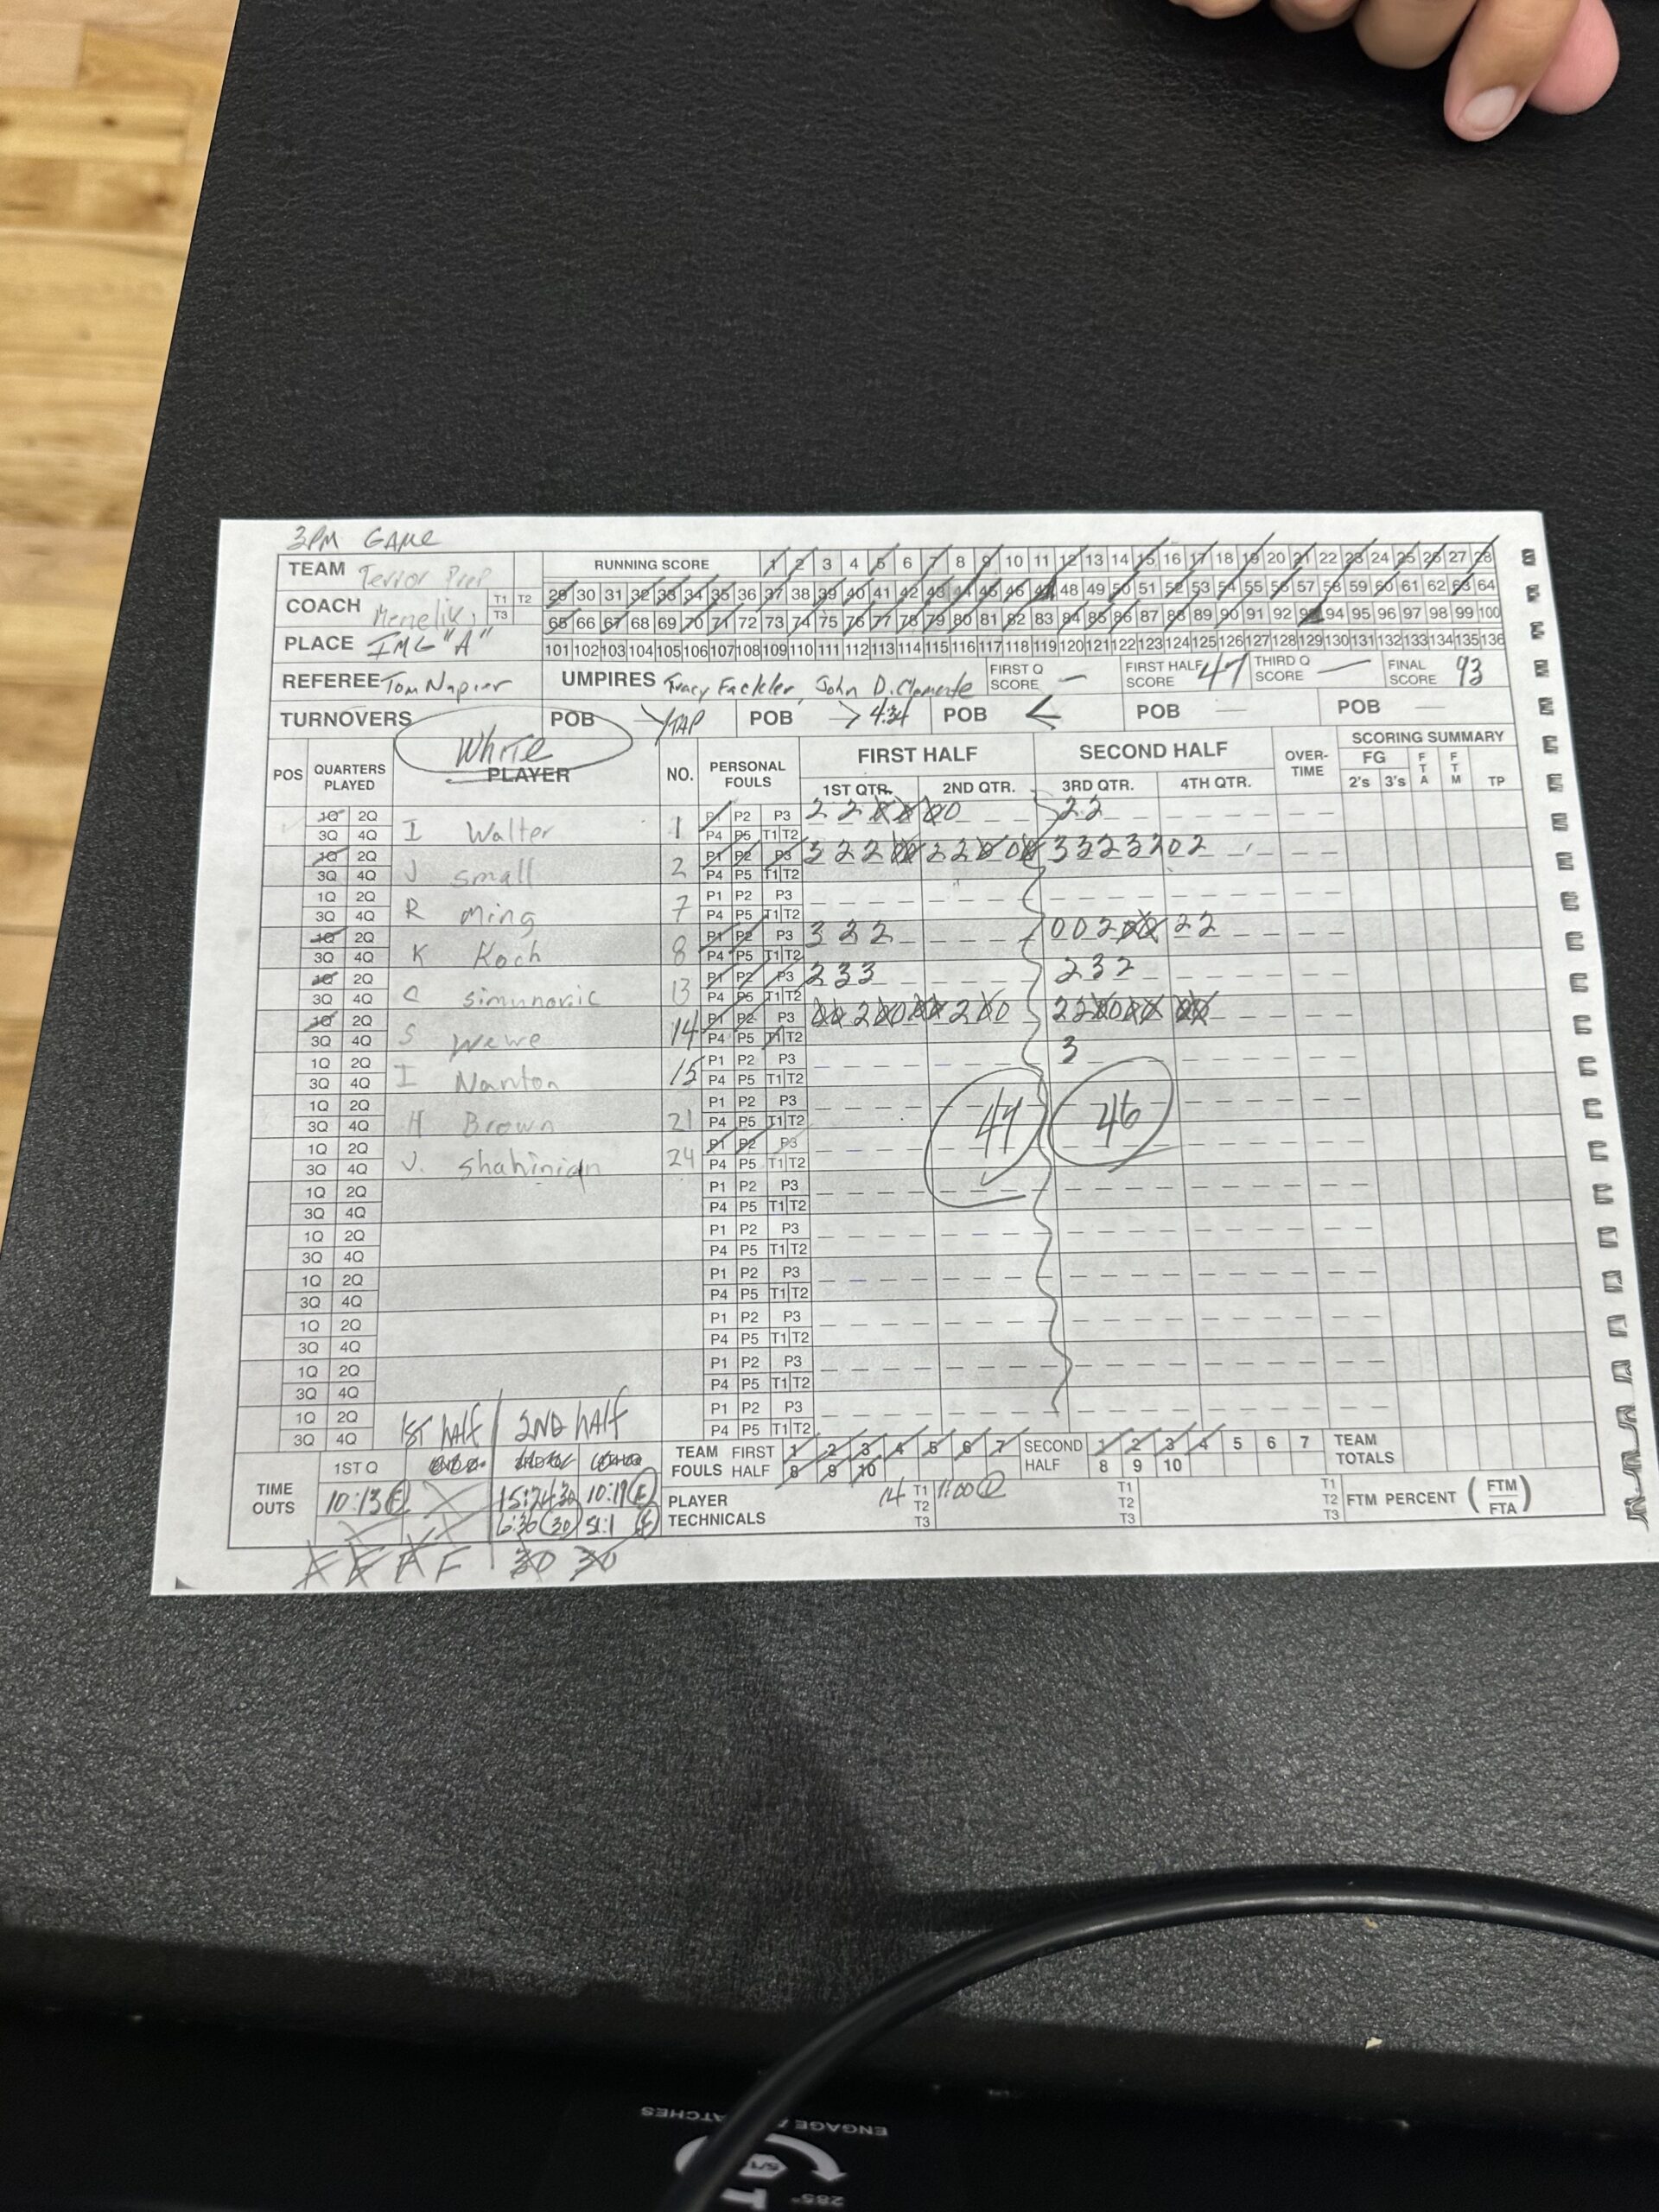 3PM GAME
TEAM Terior Prep T1 T2 RUNNING SCORE 1 2 3 4 5 6 7 8 9 10 11 12 13 14 15 16 17 18 19 20 21 22 23 24 25 26 27 28
COACH Menelik, T3 29 30 31 32 33 34 35 36 37 38 39 40 41 42 43 44 45 46 47 48 49 50 51 52 53 54 55 56 57 58 59 60 61 62 63 64
65 66 67 68 69 70 71 72 73 74 75 76 77 78 79 80 81 82 83 84 85 86 87 88 89 90 91 92 93 94 95 96 97 98 99 100
PLACE IMG "A" 101 102 103 104 105 106 107 108 109 110 111 112 113 114 115 116 117 118 119 120 121 122 123 124 125 126 127 128 129 130 131 132 133 134 135 136
REFEREE Tom Napier UMPIRES Tracy Fackler, John D. Clemente FIRST Q SCORE — FIRST HALF SCORE 47 THIRD Q SCORE — FINAL SCORE 93
TURNOVERS POB > TAP POB > 4:34 POB < POB — POB —
White
POS QUARTERS PLAYED PLAYER NO. PERSONAL FOULS FIRST HALF 1ST QTR. 2ND QTR. SECOND HALF 3RD QTR. 4TH QTR. OVER-TIME SCORING SUMMARY FG 2's 3's FTA FTM TP
1Q 2Q P1 P2 P3 2 2 2 2
3Q 4Q I Walter 1 P4 P5 T1 T2
1Q 2Q P1 P2 P3 3 2 2 2 2 3 3 2 3 2 0 2
3Q 4Q J small 2 P4 P5 T1 T2
1Q 2Q P1 P2 P3
3Q 4Q R Ming 7 P4 P5 T1 T2
1Q 2Q P1 P2 P3 3 3 2 0 0 2 2 2
3Q 4Q K Koch 8 P4 P5 T1 T2
1Q 2Q P1 P2 P3 2 3 3 2 3 2
3Q 4Q C simunovic 13 P4 P5 T1 T2
1Q 2Q P1 P2 P3 2 2 2 2
3Q 4Q S Wewe 14 P4 P5 T1 T2
1Q 2Q P1 P2 P3 3
3Q 4Q I Nanton 15 P4 P5 T1 T2
1Q 2Q P1 P2 P3
3Q 4Q H Brown 21 P4 P5 T1 T2 47 46
1Q 2Q P1 P2 P3
3Q 4Q J. Shahinian 24 P4 P5 T1 T2
1Q 2Q P1 P2 P3
3Q 4Q P4 P5 T1 T2
1Q 2Q P1 P2 P3
3Q 4Q P4 P5 T1 T2
1Q 2Q P1 P2 P3
3Q 4Q P4 P5 T1 T2
1Q 2Q P1 P2 P3
3Q 4Q P4 P5 T1 T2
1Q 2Q P1 P2 P3
3Q 4Q P4 P5 T1 T2
1Q 2Q P1 P2 P3
3Q 4Q 1ST half 2ND half P4 P5 T1 T2
TIME OUTS 1ST Q TEAM FOULS FIRST HALF 1 2 3 4 5 6 7 SECOND HALF 1 2 3 4 5 6 7 TEAM TOTALS
8 9 10 8 9 10
10:13 F 15:24 30 10:19 F PLAYER TECHNICALS 14 T1 11:00 T1 T1 FTM PERCENT (FTM/FTA)
6:36 30 51.1 F T2 T3 T2 T3 T2 T3
F F F F 30 30
ENGAGE
285°